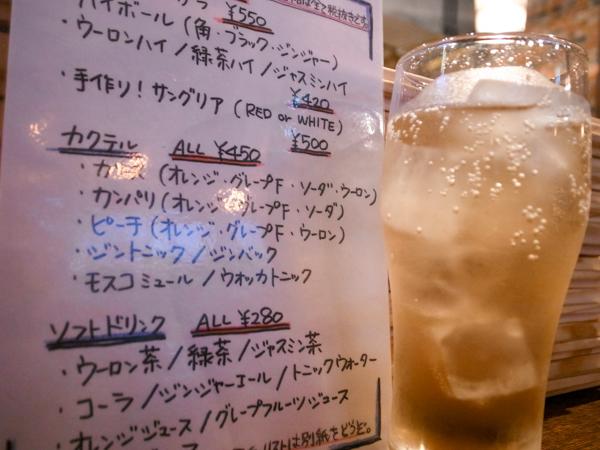 ¥550
は全て税抜きです。
ハイボール (角・ブラック・ジンジャー)
・ウーロンハイ/緑茶ハイ/ジャスミンハイ
¥420
・手作り!サングリア (RED or WHITE)
¥500
カクテル ALL ¥450
(オレンジ・グレープF・ソーダ・ウーロン)
・カンパリ(オレンジ・グレープF・ソーダ)
・ピーチ(オレンジ・グレープF・ウーロン)
・ジントニック/ジンバック
・モスコミュール/ウォッカトニック
ソフトドリンク ALL ¥280
・ウーロン茶/緑茶/ジャスミン茶
・コーラ/ジンジャーエール/トニックウォーター
・オレンジジュース/グレープフルーツジュース
リストは別紙をどうぞ。